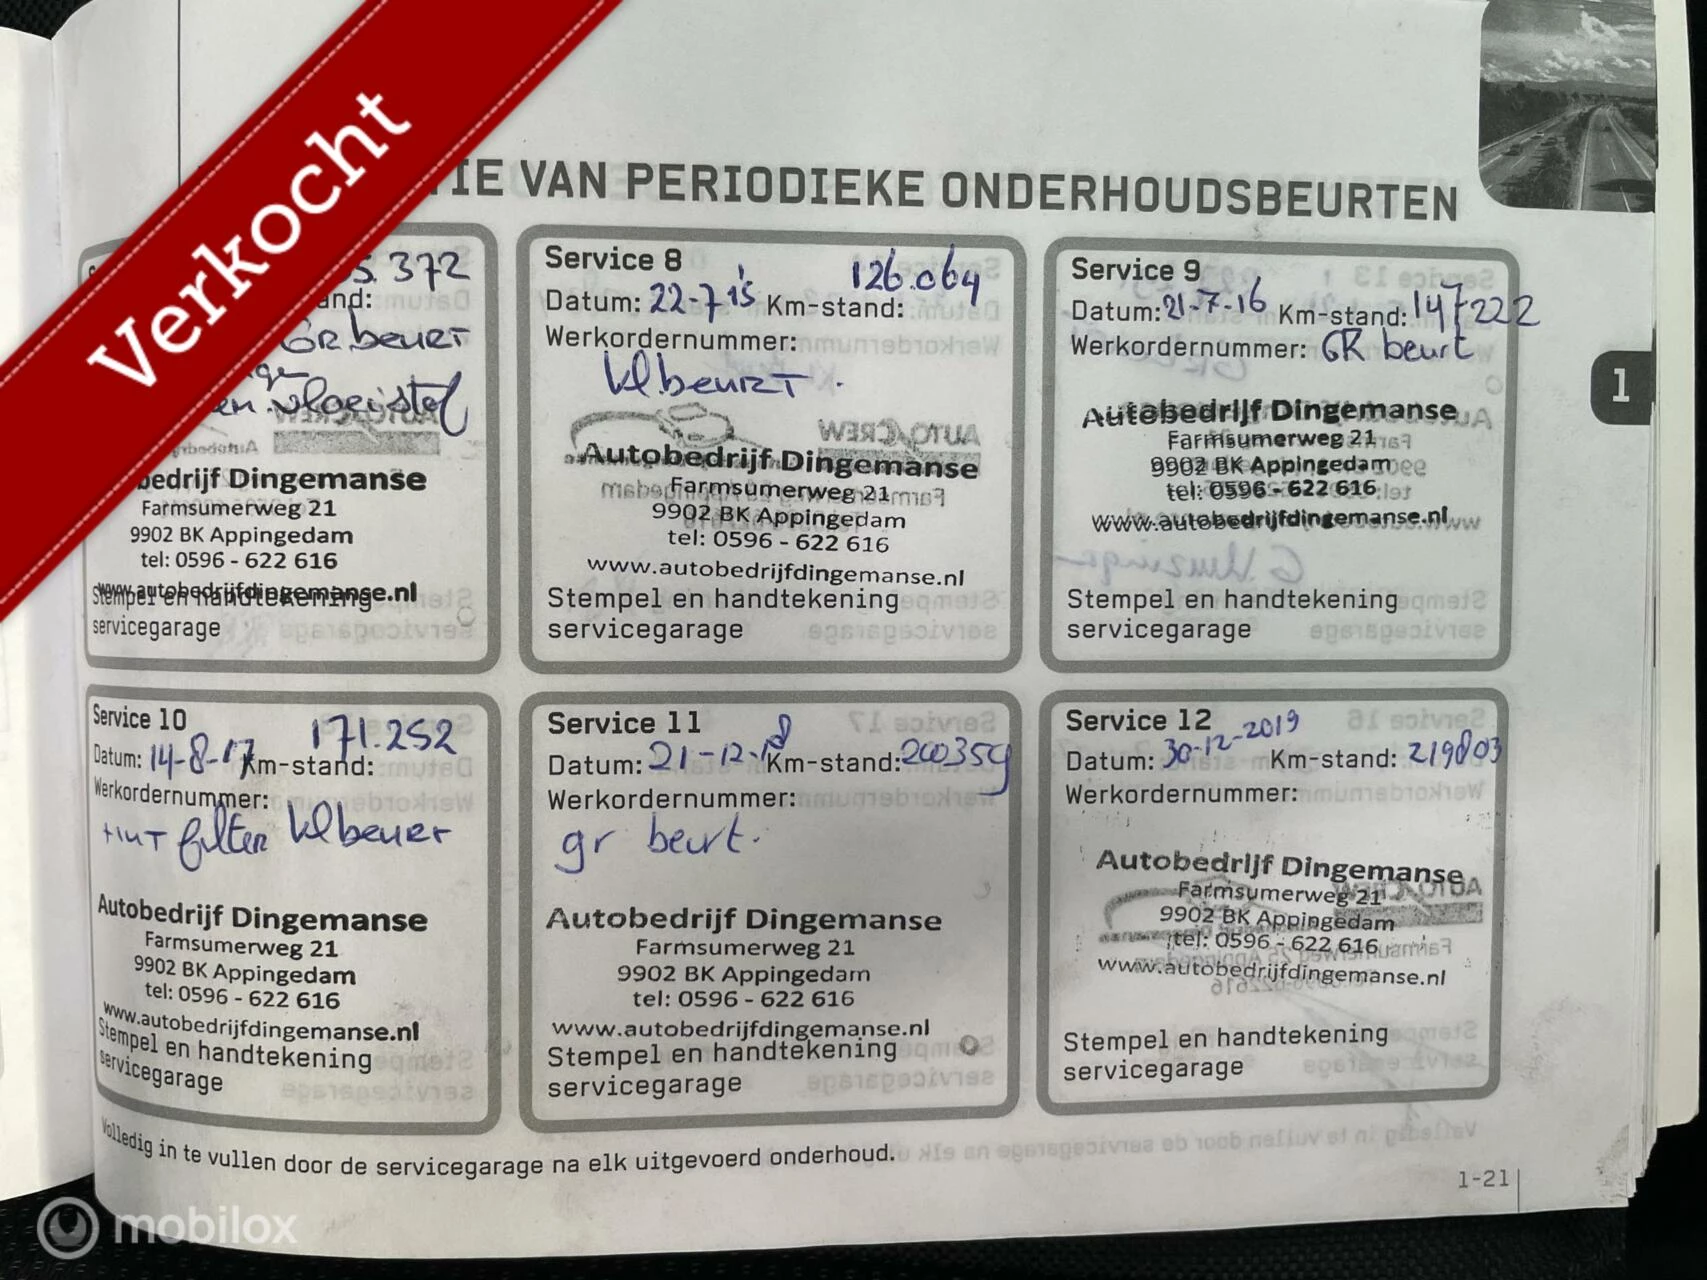 Verkocht
TIE VAN PERIODIEKE ONDERHOUDSBEURTEN
5.372
and:
GR beurt
vloeistof
bedrijf Dingemanse
Farmsumerweg 21
9902 BK Appingedam
tel: 0596 - 622 616
www.autobedrijfdingemanse.nl
Stempel en handtekening
servicegarage
Service 8
126.064
Datum: 22-7-'15 Km-stand:
Werkordernummer:
kl beurt.
Autobedrijf Dingemanse
Farmsumerweg 21
9902 BK Appingedam
tel: 0596 - 622 616
www.autobedrijfdingemanse.nl
Stempel en handtekening
servicegarage
Service 9
Datum: 21-7-16 Km-stand: 147222
Werkordernummer: GR beurt
Autobedrijf Dingemanse
Farmsumerweg 21
9902 BK Appingedam
tel: 0596 - 622 616
www.autobedrijfdingemanse.nl
Stempel en handtekening
servicegarage
1
Service 10
171.252
Datum: 14-8-17 Km-stand:
Werkordernummer:
+INT filter kl beurt
Autobedrijf Dingemanse
Farmsumerweg 21
9902 BK Appingedam
tel: 0596 - 622 616
www.autobedrijfdingemanse.nl
Stempel en handtekening
servicegarage
Service 11
Datum: 21-12-18 Km-stand: 200359
Werkordernummer:
gr beurt.
Autobedrijf Dingemanse
Farmsumerweg 21
9902 BK Appingedam
tel: 0596 - 622 616
www.autobedrijfdingemanse.nl
Stempel en handtekening
servicegarage
Service 12
Datum: 30-12-2019 Km-stand: 219803
Werkordernummer:
Autobedrijf Dingemanse
Farmsumerweg 21
9902 BK Appingedam
tel: 0596 - 622 616
www.autobedrijfdingemanse.nl
Stempel en handtekening
servicegarage
Volledig in te vullen door de servicegarage na elk uitgevoerd onderhoud.
1-21
mobilox